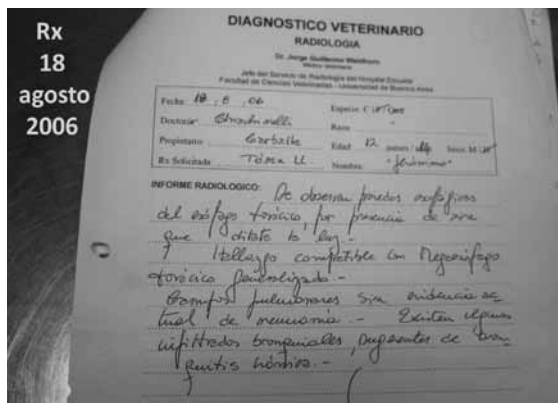 Rx
18
agosto
2006
DIAGNOSTICO VETERINARIO
RADIOLOGIA
Dr. Jorge Guillermo
Jefe del Servicio de Radiología del Hospital Escuela
Facultad de Ciencias Veterinarias - Universidad de Buenos Aires
Fecha 18, 8, 06
Especie C
Doctor/a
Raza
Propietario
Edad 12 Sexo M
Rx Solicitada Tórax LL
Nombre "Jerónimo"
INFORME RADIOLOGICO: Se observan paredes esofágicas
del esófago torácico, por presencia de aire
que dilata la luz.-
Hallazgo compatible con Megaesófago
torácico generalizado.-
Campos pulmonares sin evidencia ac-
tual de neumonía.- Existen algunos
infiltrados bronquiales, sugerentes de bron-
quitis crónica.-